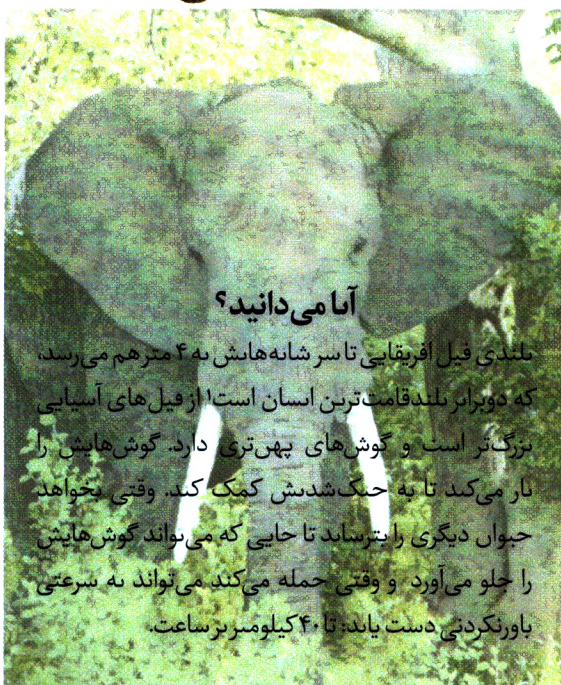 آیا می‌دانید؟
بلندی فیل افریقایی تا سر شانه‌هایش به ۴ متر هم می‌رسد،
که دوبرابر بلندقامت‌ترین انسان است! از فیل‌های آسیایی
بزرگ‌تر است و گوش‌های پهن‌تری دارد. گوش‌هایش را
باز می‌کند تا به خنک‌شدنش کمک کند. وقتی بخواهد
حیوان دیگری را بترساند تا جایی که می‌تواند گوش‌هایش
را جلو می‌آورد و وقتی حمله می‌کند می‌تواند به سرعتی
باورنکردنی دست یابد: تا ۴۰ کیلومتر بر ساعت.